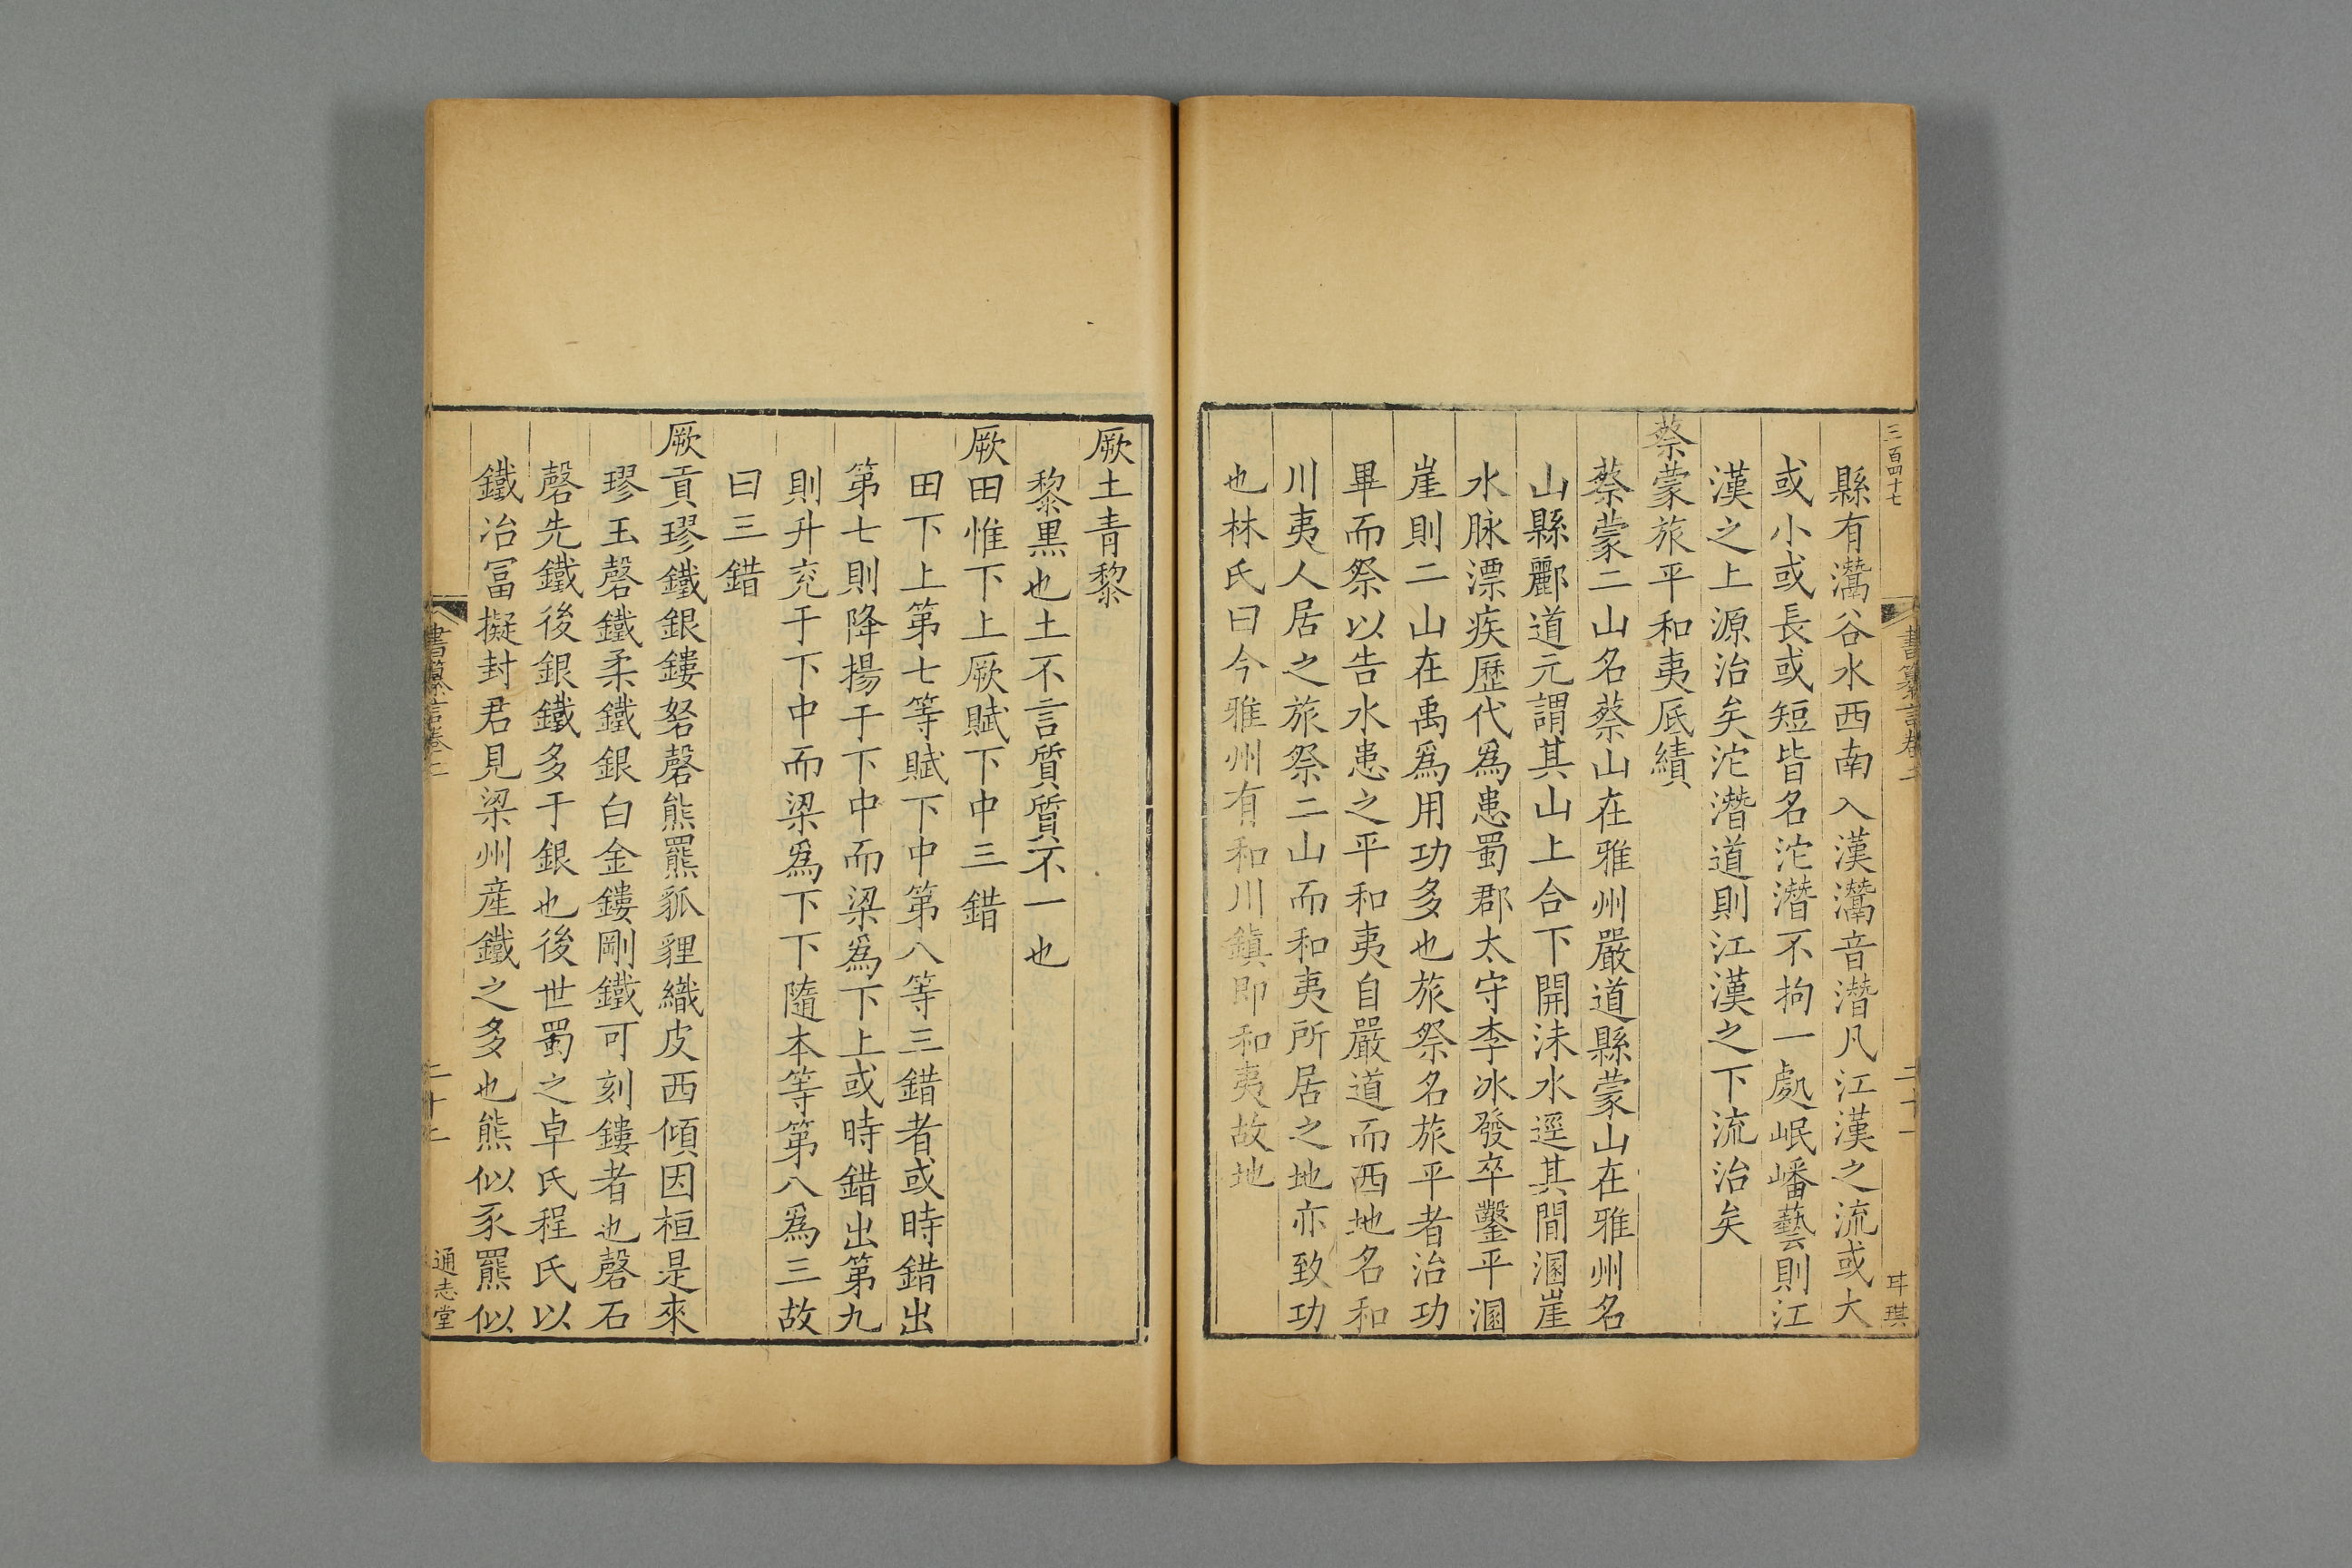 三百四十七
縣有灊谷水西南入漢灊音潛凡江漢之流或大
或小或長或短皆名沱潛不拘一處岷嶓藝則江
漢之上源治矣沱潛道則江漢之下流治矣
蔡蒙旅平和夷厎績
蔡蒙二山名蔡山在雅州嚴道縣蒙山在雅州名
山縣酈道元謂其山上合下開沬水逕其間溷崖
水脉漂疾歷代爲患蜀郡太守李冰發卒鑿平溷
崖則二山在禹爲用功多也旅祭名旅平者治功
畢而祭以告水患之平和夷自嚴道而西地名和
川夷人居之旅祭二山而和夷所居之地亦致功
也林氏曰今雅州有和川鎮即和夷故地
厥土青黎
黎黒也土不言質質不一也
厥田惟下上厥賦下中三錯
田下上第七等賦下中第八等三錯者或時錯出
第七則降揚于下中而梁爲下上或時錯出第九
則升兖于下中而梁爲下下隨本等第八爲三故
曰三錯
厥貢璆鐵銀鏤砮磬熊羆狐貍織皮西傾因桓是來
璆玉磬鐵柔鐵銀白金鏤剛鐵可刻鏤者也磬石
磬先鐵後銀鐵多于銀也後世蜀之卓氏程氏以
鐵冶冨擬封君見梁州産鐵之多也熊似豕羆似
書纂言卷二
通志堂